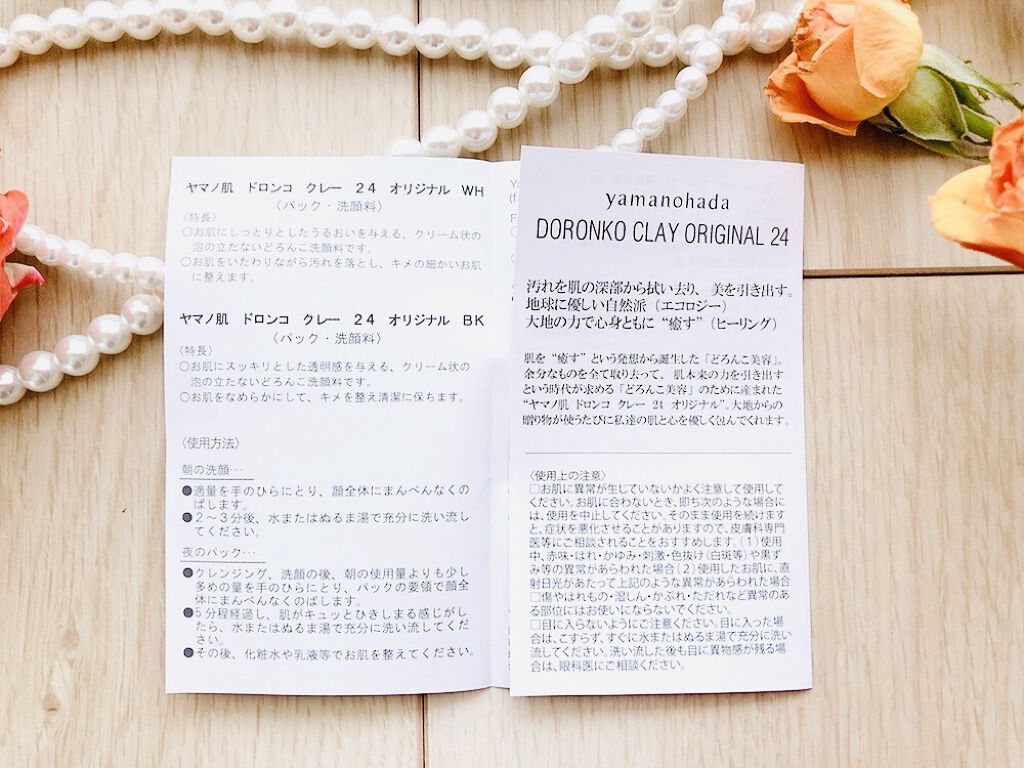 ヤマノ肌 ドロンコ クレー 24 オリジナル WH
〈パック・洗顔料〉
〈特長〉
○お肌にしっとりとしたうるおいを与える、クリーム状の
泡の立たないどろんこ洗顔料です。
○お肌をいたわりながら汚れを落とし、キメの細かいお肌
に整えます。
ヤマノ肌 ドロンコ クレー 24 オリジナル BK
〈パック・洗顔料〉
〈特長〉
○お肌にスッキリとした透明感を与える、クリーム状の
泡の立たないどろんこ洗顔料です。
○お肌をなめらかにして、キメを整え清潔に保ちます。
〈使用方法〉
朝の洗顔…
●適量を手のひらにとり、顔全体にまんべんなくの
ばします。
●2～3分後、水またはぬるま湯で充分に洗い流し
てください。
夜のパック…
●クレンジング、洗顔の後、朝の使用量よりも少し
多めの量を手のひらにとり、パックの要領で顔全
体にまんべんなくのばします。
●5分程経過し、肌がキュッとひきしまる感じがし
たら、水またはぬるま湯で充分に洗い流してくだ
さい。
●その後、化粧水や乳液等でお肌を整えてください。
yamanohada
DORONKO CLAY ORIGINAL 24
汚れを肌の深部から拭い去り、美を引き出す。
地球に優しい自然派（エコロジー）
大地の力で心身ともに“癒す”（ヒーリング）
肌を“癒す”という発想から誕生した「どろんこ美容」。
余分なものを全て取り去って、肌本来の力を引き出す
という時代が求める「どろんこ美容」のために産まれた
“ヤマノ肌 ドロンコ クレー 24 オリジナル”。大地からの
贈り物が使うたびに私達の肌と心を優しく包んでくれます。
〈使用上の注意〉
□お肌に異常が生じていないかよく注意して使用して
ください。お肌に合わないとき、即ち次のような場合に
は、使用を中止してください。そのまま使用を続けます
と、症状を悪化させることがありますので、皮膚科専門
医等にご相談されることをおすすめします。（1）使用
中、赤味・はれ・かゆみ・刺激・色抜け（白斑等）や黒ず
み等の異常があらわれた場合（2）使用したお肌に、直
射日光があたって上記のような異常があらわれた場合
□傷やはれもの・湿しん・かぶれ・ただれなど異常のあ
る部位にはお使いにならないでください。
□目に入らないようにご注意ください。目に入った場
合は、こすらず、すぐに水またはぬるま湯で充分に洗い
流してください。洗い流した後も目に異物感が残る場
合は、眼科医にご相談ください。